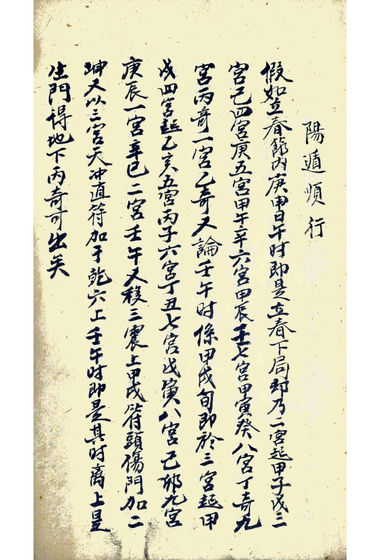 陽遁順行
假如立春節內庚甲日午时即是立春下局即乃二宮起甲子戊三
宮己四宮庚五宮甲午辛六宮甲辰壬七宮甲寅癸八宮丁奇九
宮丙奇一宮乙奇又論壬午时係甲戌旬即於三宮起甲
戌四宮起乙亥五宮丙子六宮丁丑七宮戊寅八宮己卯九宮
庚辰一宮辛巳二宮壬午又移三震上甲戌符頭傷門加二
坤又以三宮天冲直符加于乾六上壬午时即是其时离上是
生門得地下丙奇可出矣